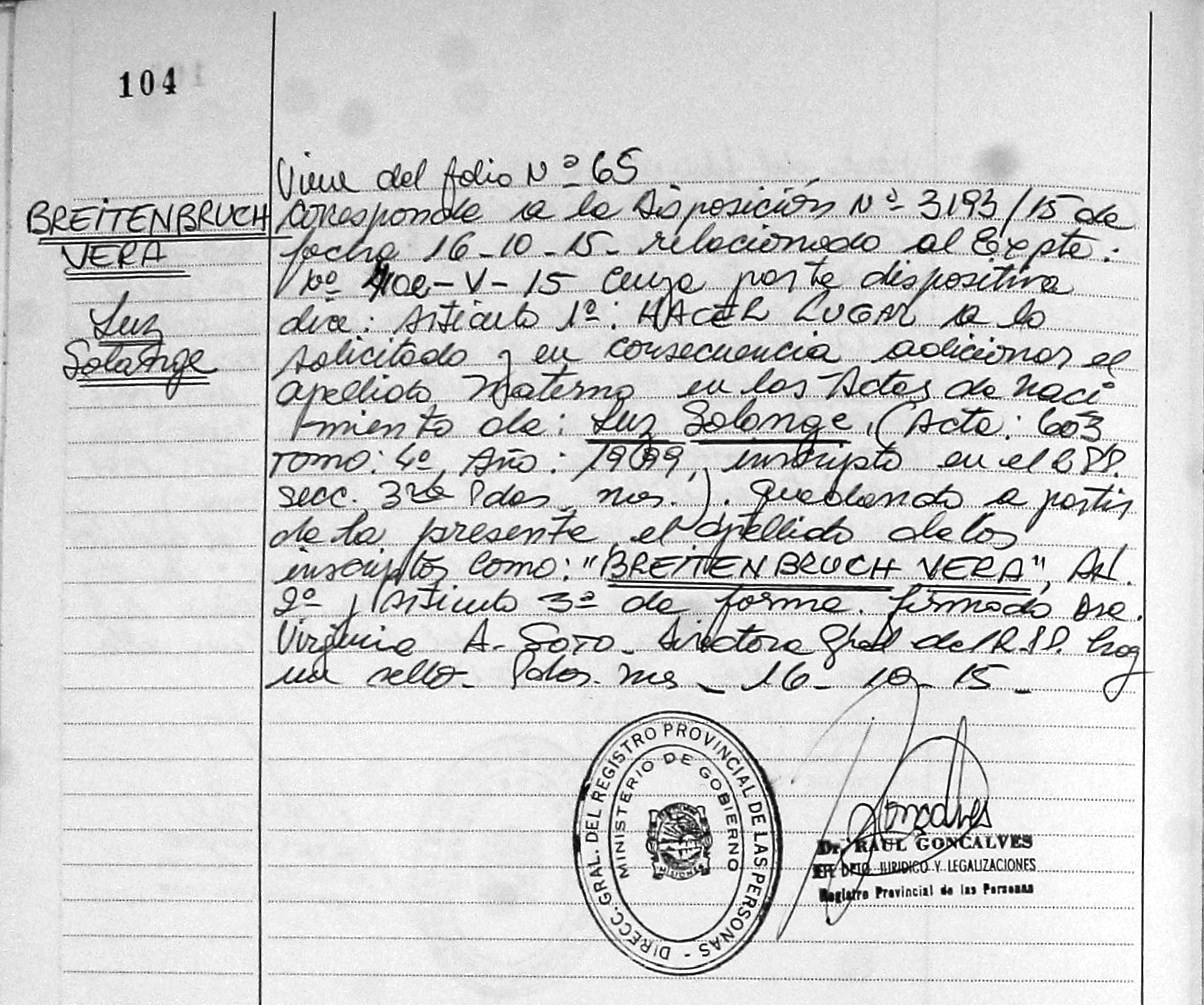 104
BREITENBRUCH
VERA
Luz
Solange
Viene del folio Nº 65
Corresponde a la Disposición Nº 3193/15 de
fecha 16-10-15- relacionado al Expte:
Nº -V-15 Cuya parte dispositiva
dice: Artículo 1º: HACER LUGAR a lo
solicitado y en consecuencia adicionar el
apellido Materno en las Actas de Naci
miento de: Luz Solange, (Acta: 603
Tomo: 4º, Año: 1999, inscripto en el
secc. 3ra Pdas. mnes.). Quedando a partir
de la presente el Apellido de los
inscriptos como: "BREITENBRUCH VERA", Art.
2º y Artículo 3º de forma. firmado Dra.
Virginia A. SOTO. Directora Gral del R.PP. hay
un sello. Pdas. mnes - 16-10-15-
DIRECC. GRAL. DEL REGISTRO PROVINCIAL DE LAS PERSONAS -
MINISTERIO DE GOBIERNO
MISIONES
Goncalves
Dr. RAUL GONCALVES
DPTO. JURIDICO Y LEGALIZACIONES
Registro Provincial de las Personas